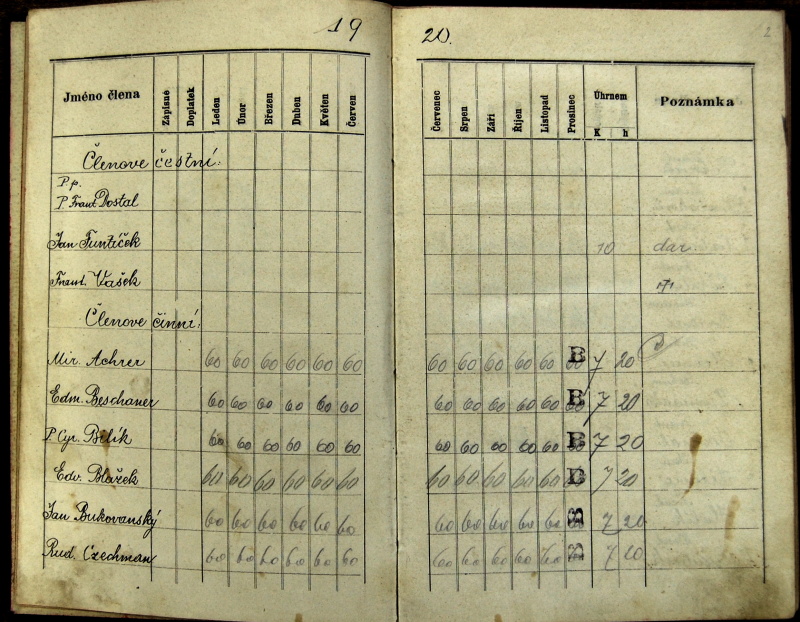 19
20.
2
Jméno člena Zápisné Doplatek Leden Únor Březen Duben Květen Červen Červenec Srpen Září Říjen Listopad Prosinec Úhrnem K h Poznámka
Členové čestní:
P. p.
P. Frant. Dostal
Jan Funtíček 10 dar.
Frant. Vašek
Členové činní:
Mir. Achrer 60 60 60 60 60 60 60 60 60 60 60 60 B 7 20
Edm. Beschaner 60 60 60 60 60 60 60 60 60 60 60 60 B 7 20
P. Cyr. Bělík 60 60 60 60 60 60 60 60 60 60 60 60 B 7 20
Edv. Blažek 60 60 60 60 60 60 60 60 60 60 60 7 20
Jan Bukovanský 60 60 60 60 60 60 60 60 60 60 60 7 20
Rud. Czechman 60 60 60 60 60 60 60 60 60 60 60 7 20